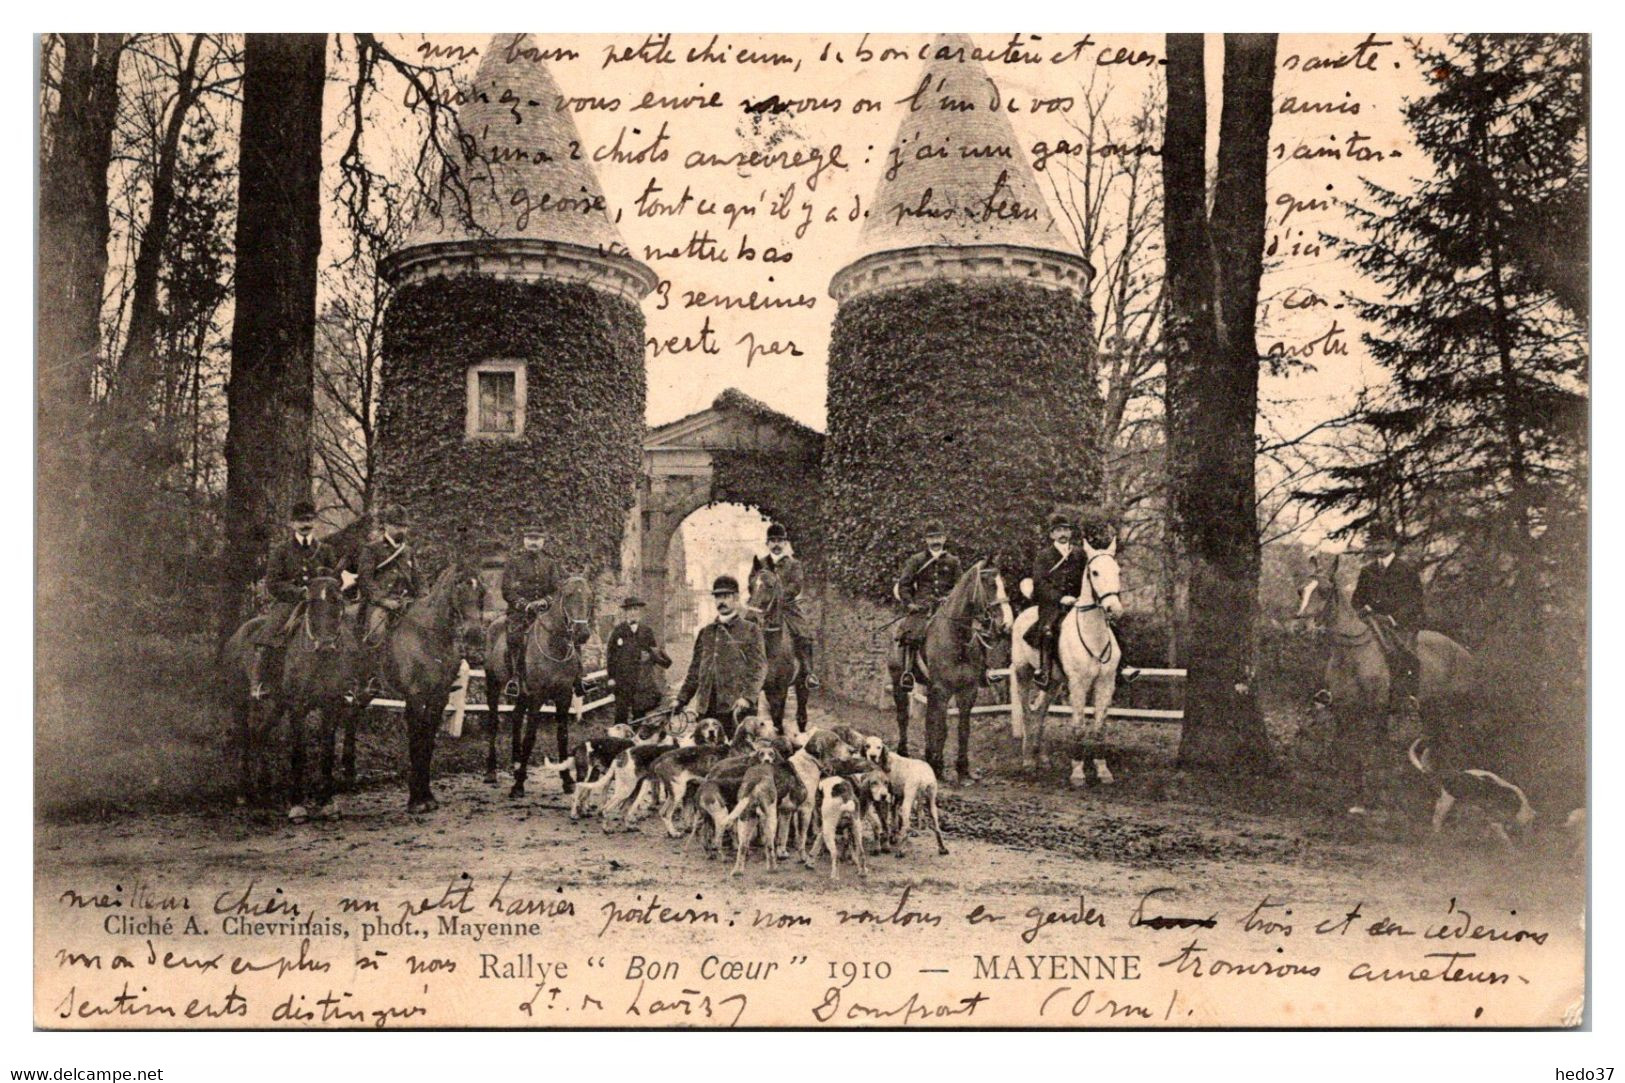 une bonne petite chienne, de bon caractère et ceres- sante.
Auriez-vous envie vous ou l'un de vos amis
d'un ou 2 chiots au sevrage : j'ai une gasconne saintan-
geoise, tout ce qu'il y a de plus bien, qui
va mettre bas d'ici
3 semeines con-
verte par notre
meilleur chien, un petit harrier poitevin : nous voulons en garder deux trois et en céderions
un ou deux en plus si nous trouvions ameteurs-
Cliché A. Chevrinais, phot., Mayenne
Rallye " Bon Cœur " 1910 — MAYENNE
sentiments distingués Lt. de Domfront (Orne).
hedo37
www.delcampe.net